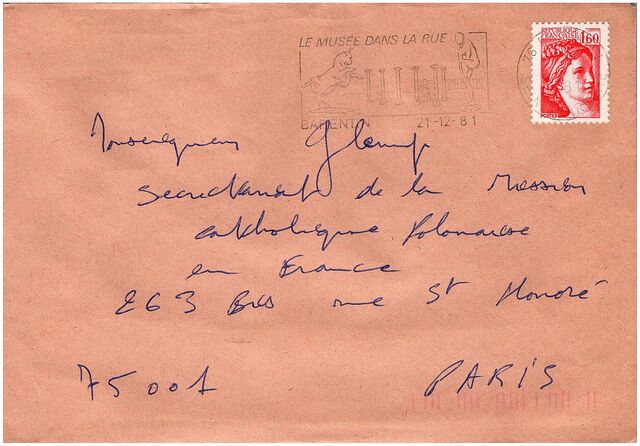 LE MUSÉE DANS LA RUE
BARENTIN 21-12-81
1,60
POSTES
76
Monseigneur Glemp
Secretariat de la Mission
catholique Polonaise
en France
263 Bis rue St Honoré
75001 PARIS